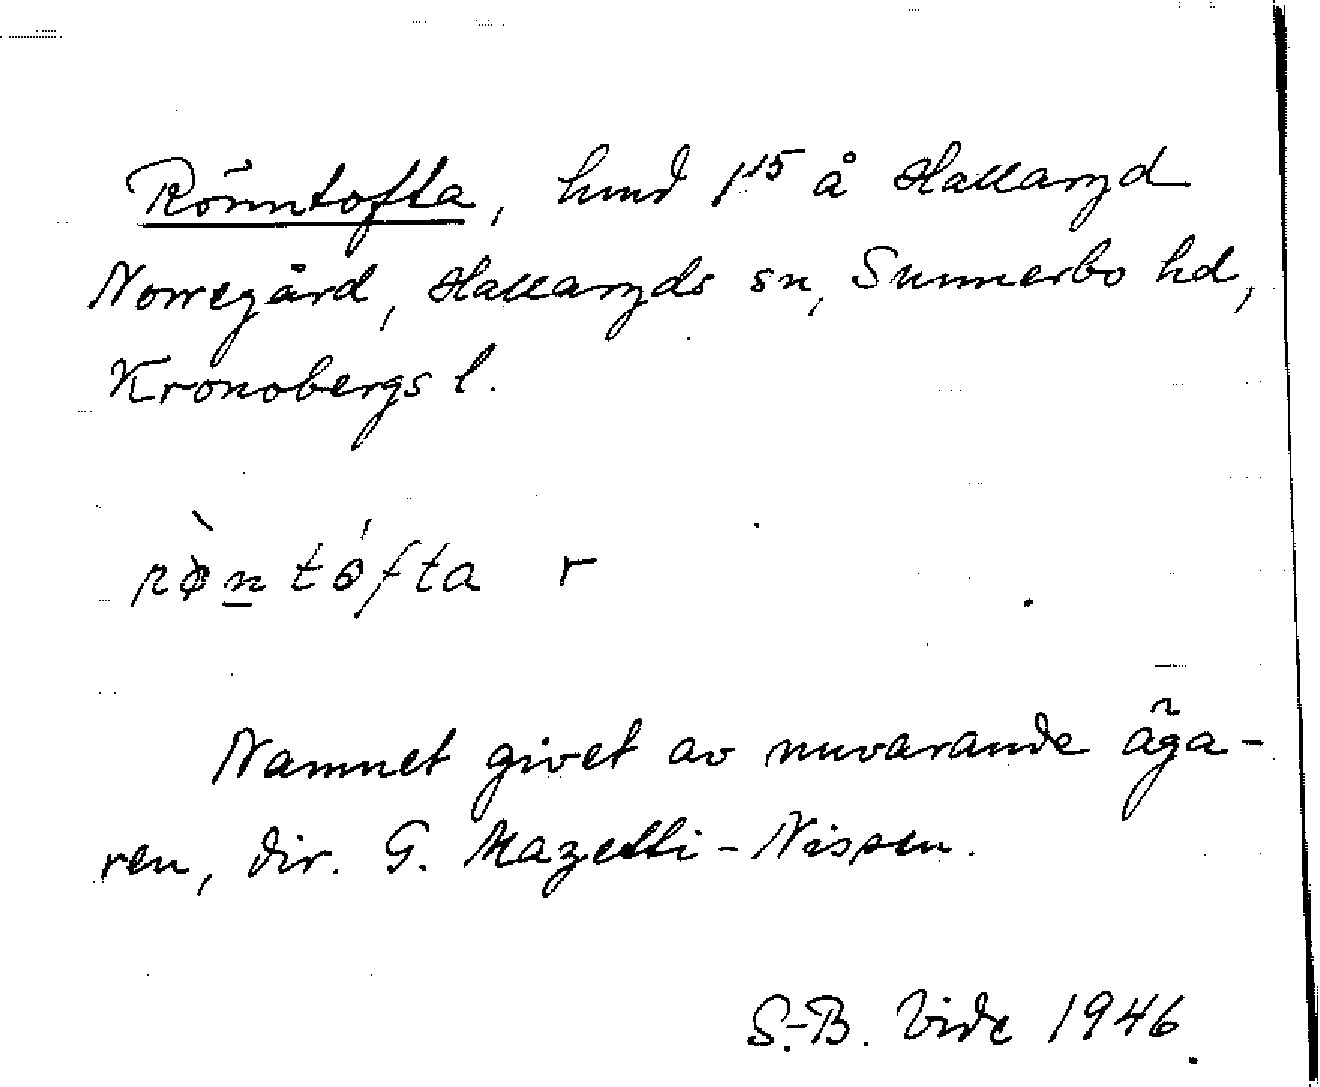 Rönntofta, lund 1¹⁵ å Hallaryd
Norregård, Hallaryds sn, Sunnerbo hd,
Kronobergs l.
rø̀ntófta r
Namnet givet av nuvarande äga-
ren, dir. G. Mazetti-Nissen.
S.-B. Vide 1946